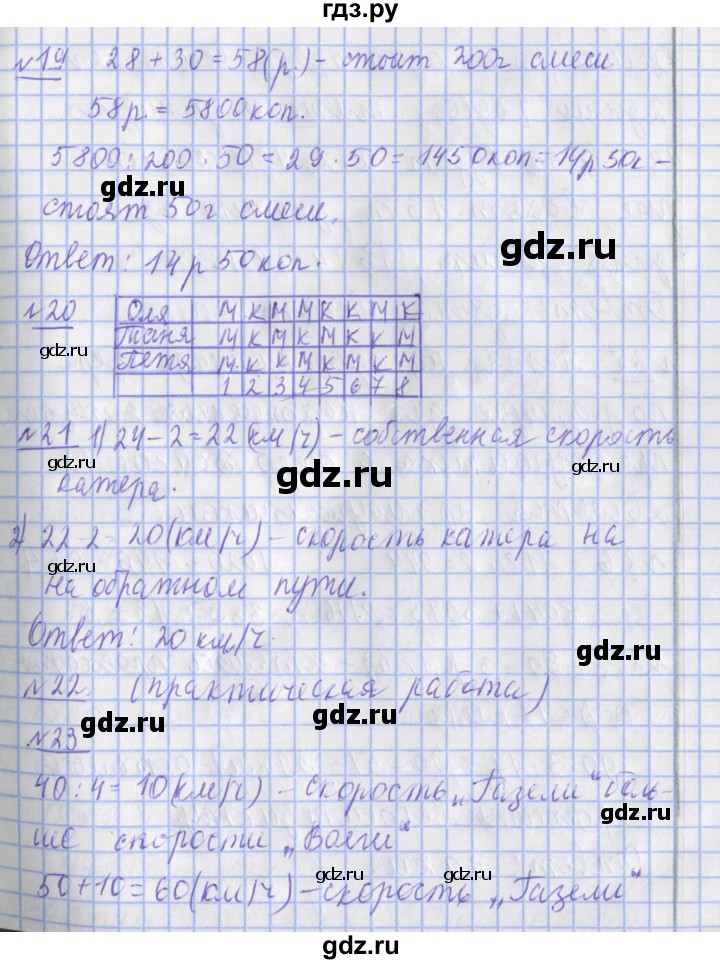 гдз.ру
№19 28 + 30 = 58 (р.) - стоит 200г смеси
58 р. = 5800 коп.
5800 : 200 · 50 = 29 · 50 = 1450коп = 14р 50к -
gdz.ru
gdz.ru
стоят 50г смеси.
gdz.ru
Ответ: 14 р 50 коп.
№20 Оля М К М М К К М К
gdz.ru
Таня М К М К М К К М
gdz.ru
Петя М К К М К М К М
1 2 3 4 5 6 7 8
№21 1) 24 - 2 = 22 (км/ч) - собственная скорость
gdz.ru
gdz.ru
gdz.ru
катера.
2) 22 - 2 = 20 (км/ч) - скорость катера на
gdz.ru
gdz.ru
на обратном пути.
Ответ: 20 км/ч.
gdz.ru
№22. (практическая работа)
gdz.ru
gdz.ru
№23
40 : 4 = 10 (км/ч) - скорость „Газели“ боль-
gdz.ru
ше скорости „Волги“
50 + 10 = 60 (км/ч) - скорость „Газели“
gdz.ru
gdz.ru
gdz.ru